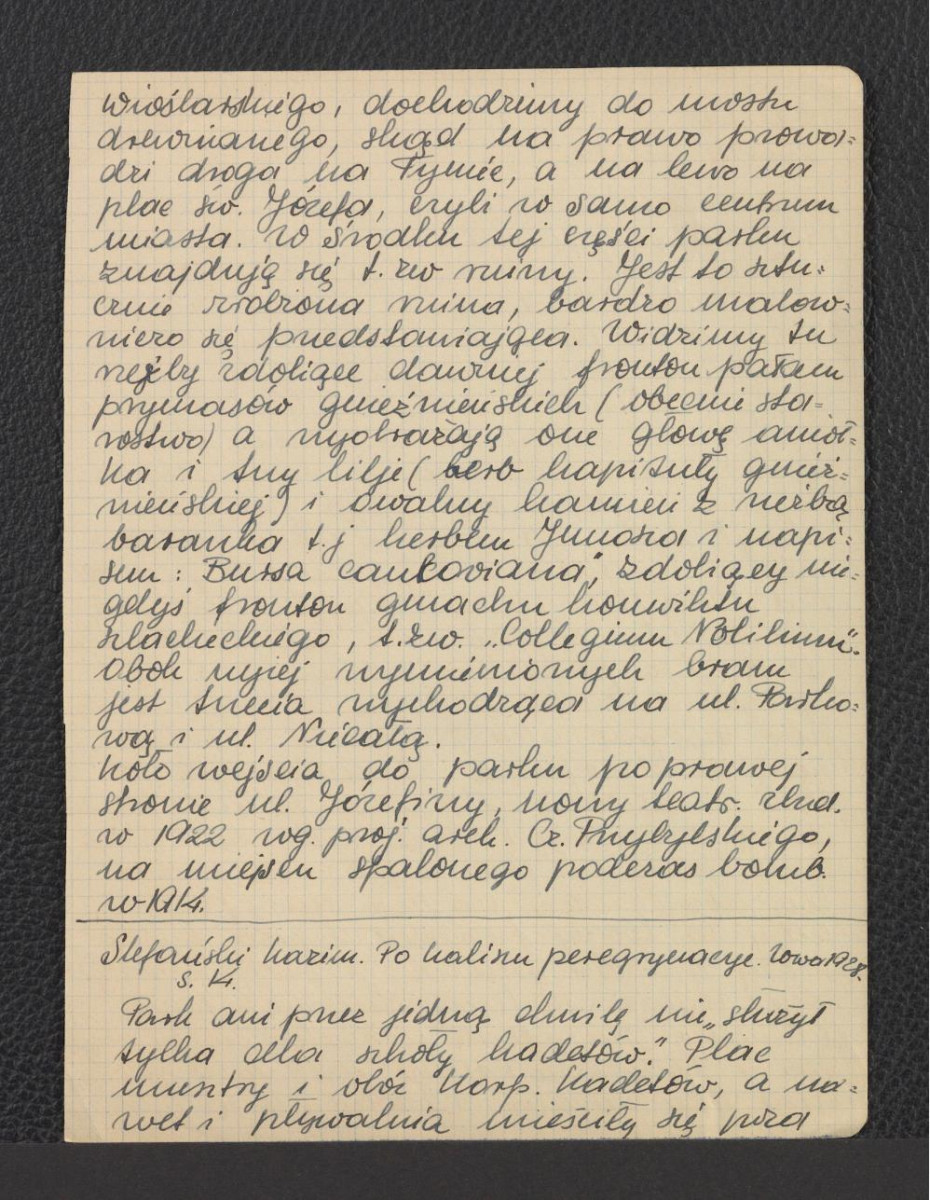 wioślarskiego, dochodzimy do mostu
drewnianego, skąd na prawo prowa=
dzi droga na Tyniec, a na lewo na
plac św. Józefa, czyli w samo centrum
miasta. W środku tej części parku
znajdują się t. zw ruiny. Jest to sztu=
cznie zrobiona ruina, bardzo malow=
niczo się przedstawiająca. Widzimy tu
rzeźby zdobiące dawniej fronton pałacu
prymasów gnieźnieńskich (obecnie sta=
rostwo) a wyobrażają one głowę anioł=
ka i trzy lilje (herb kapituły gnieź=
nieńskiej) i owalny kamień z rzeźbą
baranka t.j herbem Junosza i napi=
sem: "Bursa Cancoviana", zdobiący nie=
gdyś fronton gmachu konwiktu
szlacheckiego, t.zw. „Collegium Nobilium".
Obok wyżej wymienionych bram
jest trzecia wychodząca na ul. Parko=
wą i ul. Niecałą.
Koło wejścia do parku po prawej
stronie ul. Józefiny, nowy teatr. zbud.
w 1922 wg. proj. arch. Cz. Przybylskiego,
na miejscu spalonego podczas bomb.
w 1914.
Stefański Kazim. Po Kaliszu peregrynacye. 1928.
s. 14.
Park ani przez jedną chwilę nie „służył
tylko dla szkoły kadetów." Plac
musztry i obóz Korp. Kadetów, a na=
wet i pływalnia mieściły się poza